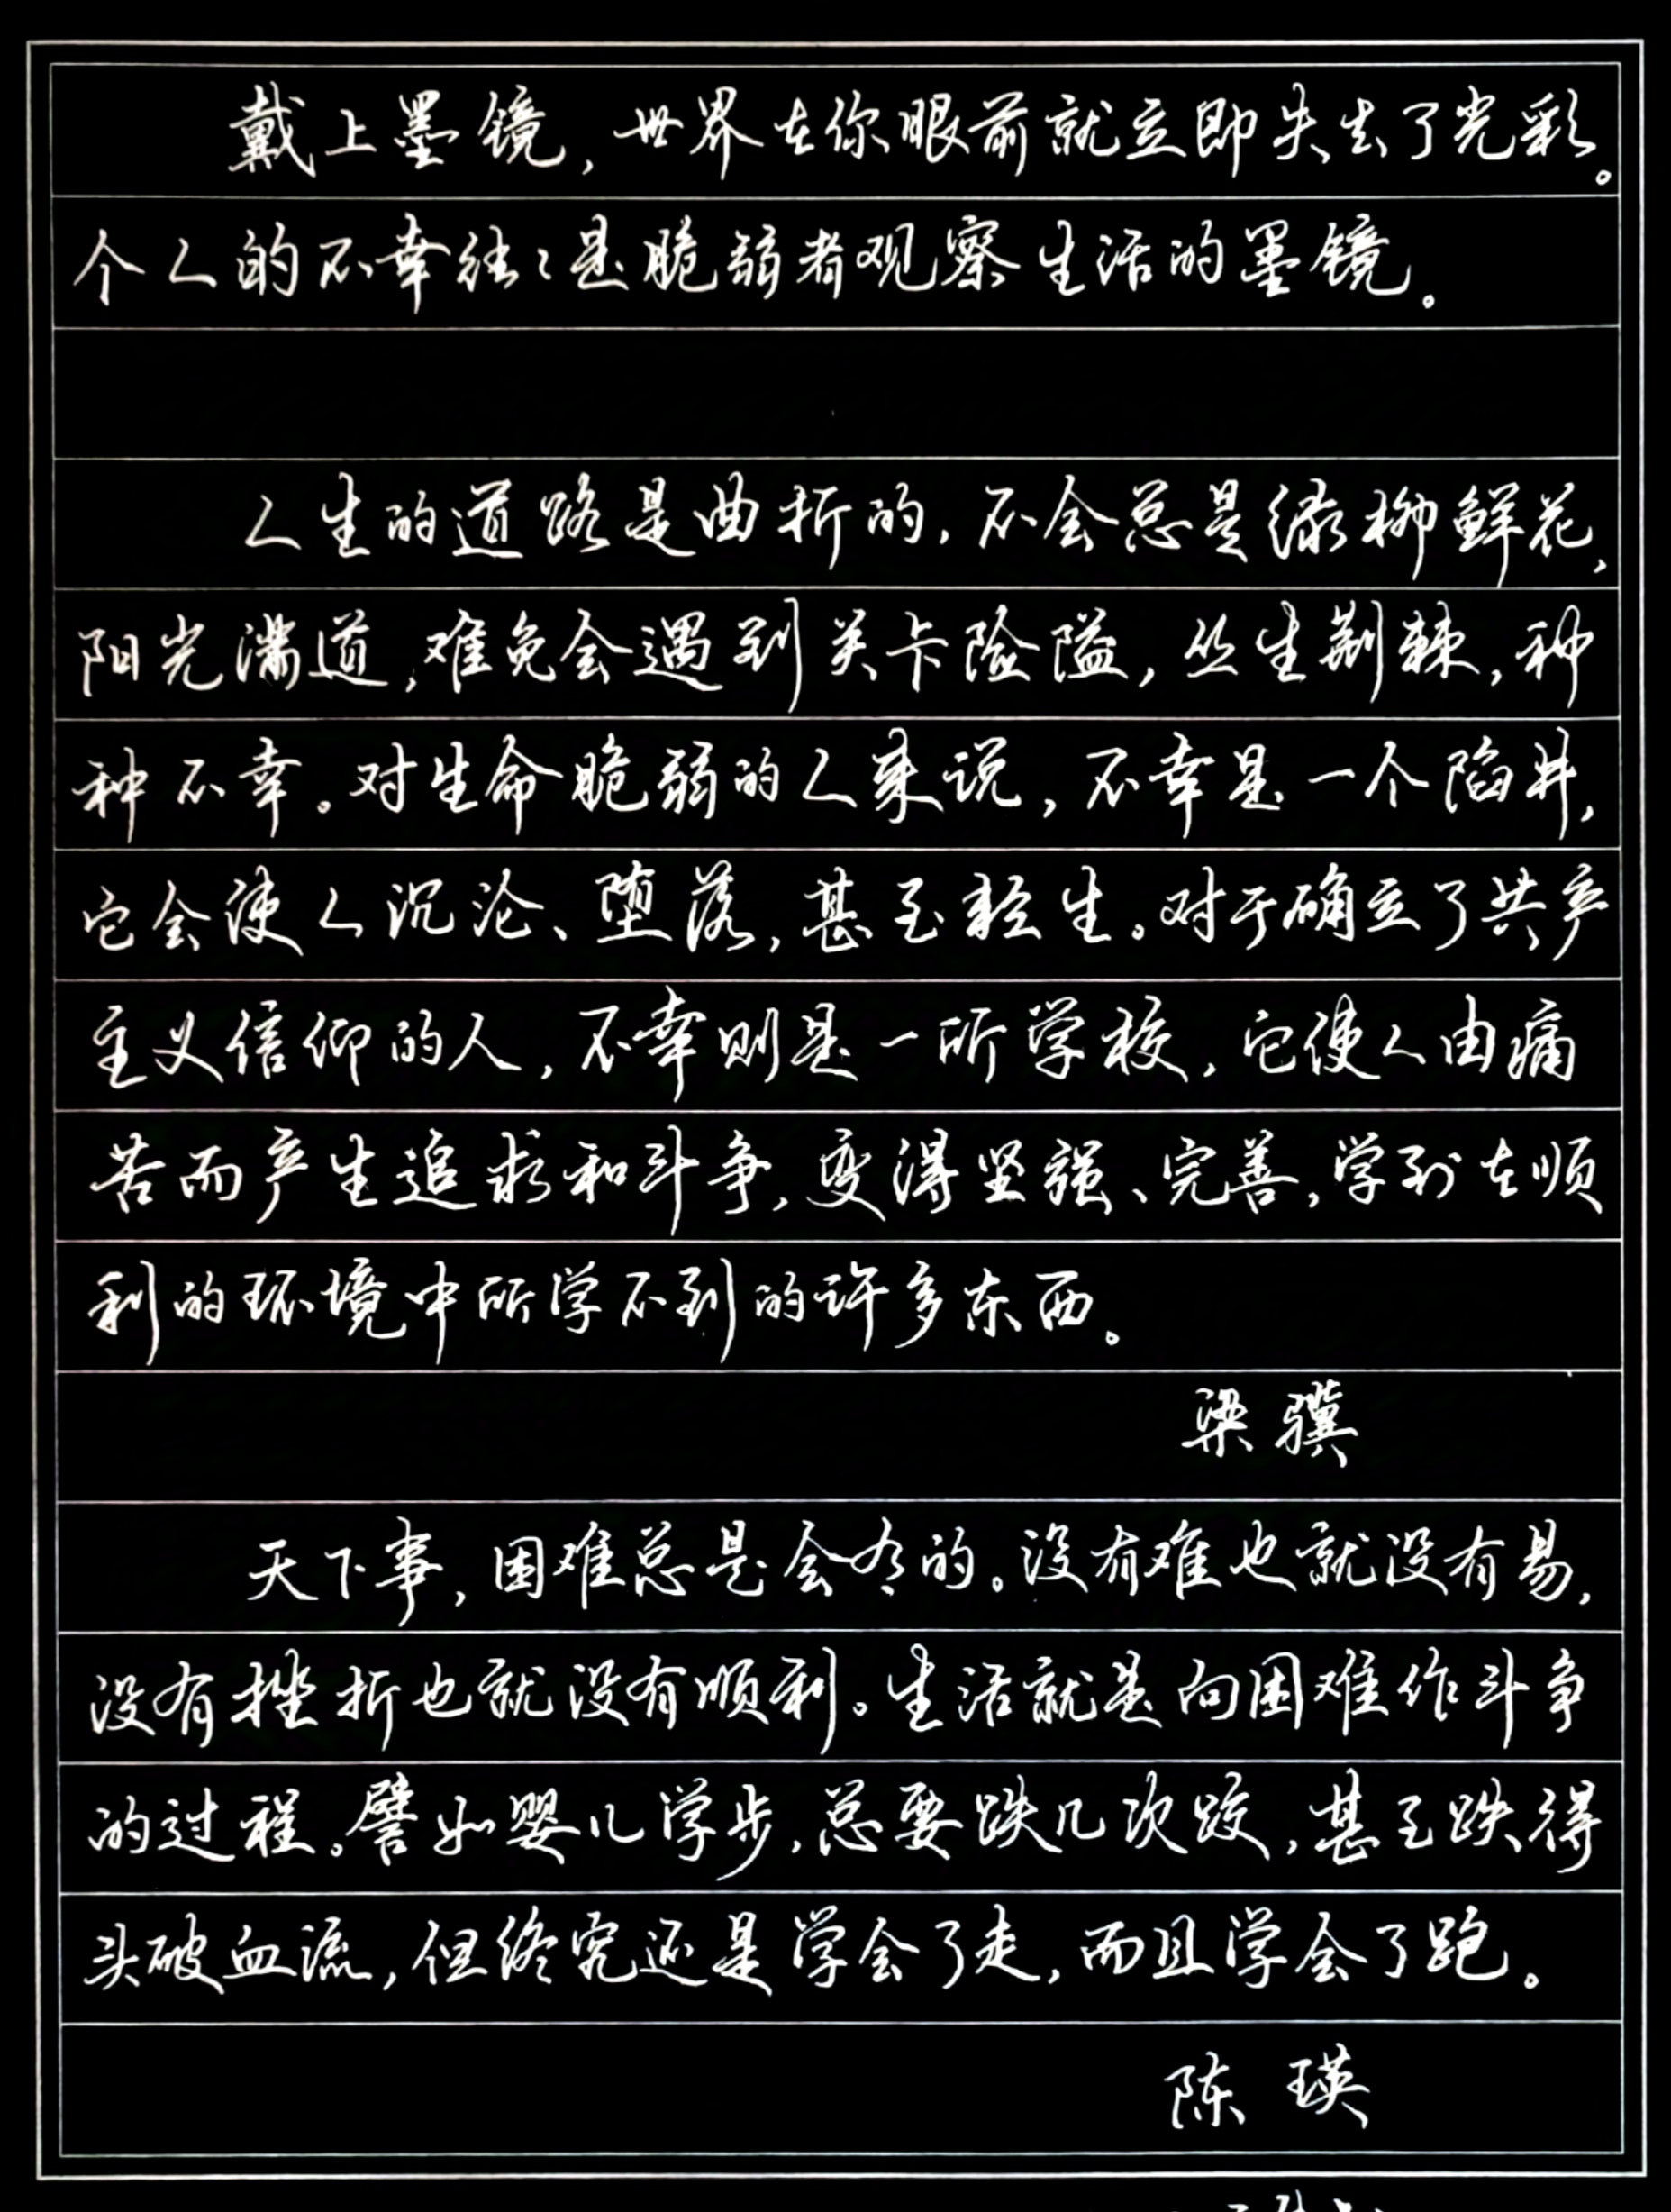 戴上墨镜，世界在你眼前就立即失去了光彩。
个人的不幸往々是脆弱者观察生活的墨镜。
人生的道路是曲折的，不会总是绿柳鲜花，
阳光满道，难免会遇到关卡险隘，丛生荆棘，种
种不幸。对生命脆弱的人来说，不幸是一个陷井，
它会使人沉沦、堕落，甚至轻生。对于确立了共产
主义信仰的人，不幸则是一所学校，它使人由痛
苦而产生追求和斗争，变得坚强、完善，学到在顺
利的环境中所学不到的许多东西。
梁骥
天下事，困难总是会有的。没有难也就没有易，
没有挫折也就没有顺利。生活就是向困难作斗争
的过程。譬如婴儿学步，总要跌几次跤，甚至跌得
头破血流，但终究还是学会了走，而且学会了跑。
陈瑛